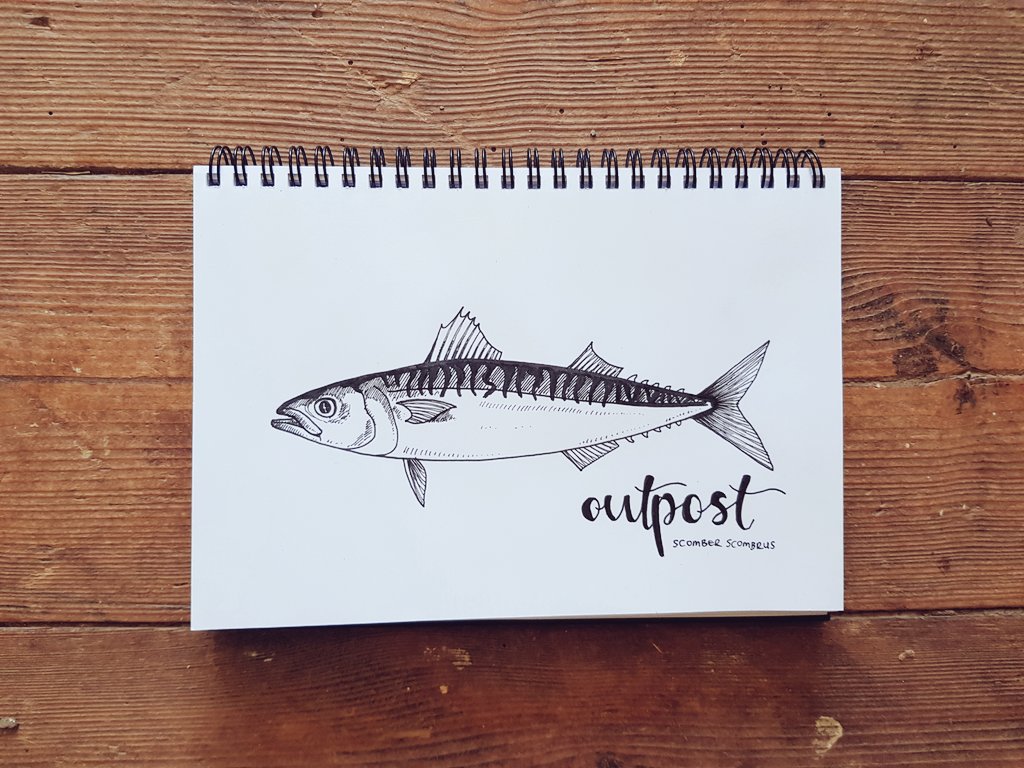 outpost
SCOMBER SCOMBRUS